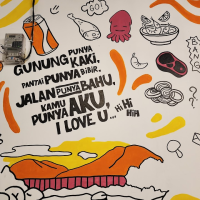 GUNUNG PUNYA
KAKI,
PANTAI PUNYA BIBIR,
JALAN PUNYA BAHU,
KAMU
PUNYA AKU,
I LOVE U... HI HI
HIHI